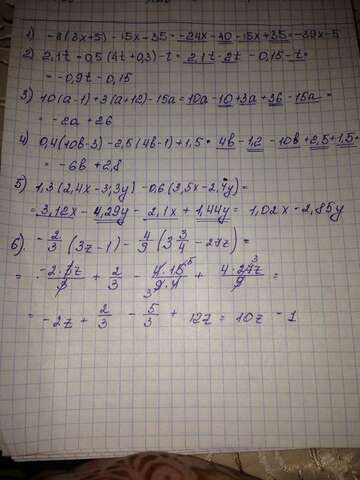 1) -8(3x+5) -15x+35 = -24x-40-15x+35 = -39x-5
2) 2,1t - 0,5(4t+0,3)-t = 2,1t-2t - 0,15-t =
= -0,9t - 0,15
3) 10(a-1)+3(a+12)-15a = 10a-10+3a+36-15a =
= -2a + 26
4) 0,4(10b-3) - 2,5(4b-1)+1,5 = 4b-1,2 -10b+2,5+1,5 =
= -6b + 2,8
5) 1,3(2,4x-3,3y) -0,6(3,5x-2,4y) =
= 3,12x - 4,29y - 2,1x + 1,44y = 1,02x - 2,85y
6) -2/3 (3z-1) - 4/9 (3 3/4 - 27z) =
= -2·3z/3 + 2/3 - 4·15 5/3 9·4 + 4·27z 3/9 =
= -2z + 2/3 - 5/3 + 12z = 10z - 1